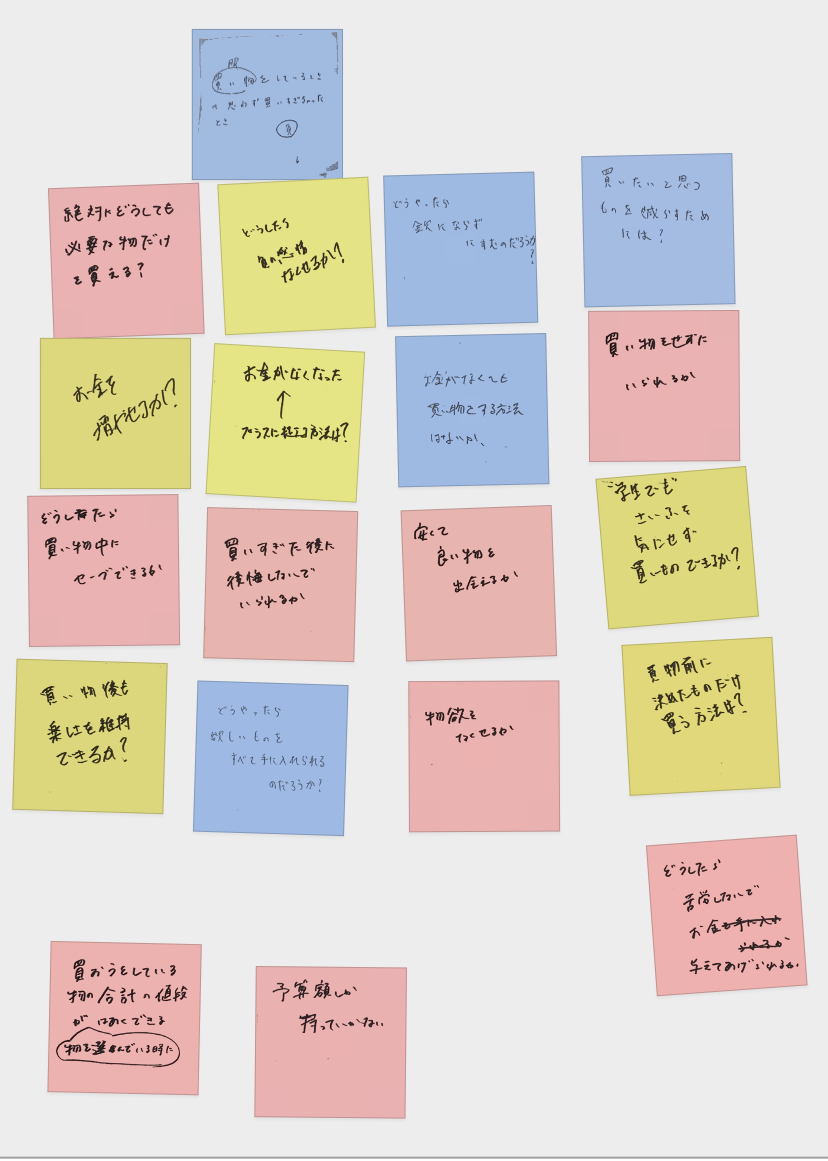 服
買い物をしているとき
の思わず買いすぎちゃった
とき
負
↓
絶対にどうしても
必要な物だけ
を買える?
どうしたら
負の感情
なくせるか!?
どうやったら
欲にならず
にすむのだろうか
?
買いたいと思う
ものを減らすため
には?
お金を
増やせるか!?
お金がなくなった
↑
プラスに捉える方法は?
お金がなくても
買い物をする方法
はないか、
買い物をせずに
いられるか
どうしたら
買い物中に
セーブできるか
買いすぎた後に
後悔しないで
いられるか
安くて
良い物を
出会えるか
学生でも
さいふを
気にせず
買いものできるか?
買い物後も
楽しさを維持
できるか?
どうやったら
欲しいものを
すべて手に入れられる
のだろうか?
物欲を
なくせるか
買物前に
決めたものだけ
買う方法は?
どうしたら
苦労しないで
お金を手に入れ
られるか
与えてあげられるか
買おうとしている
物の合計の値段
がはあくできる
物を選んでいる時に
予算額しか
持っていかない